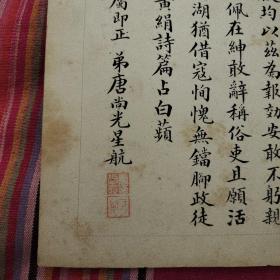 均以茲為報勒安敢不躬親
佩在紳敢辭稱俗吏且願活
湖猶借寇恂愧無鐺腳政徒
黃絹詩篇占白蘋
即正　弟唐尚光星航